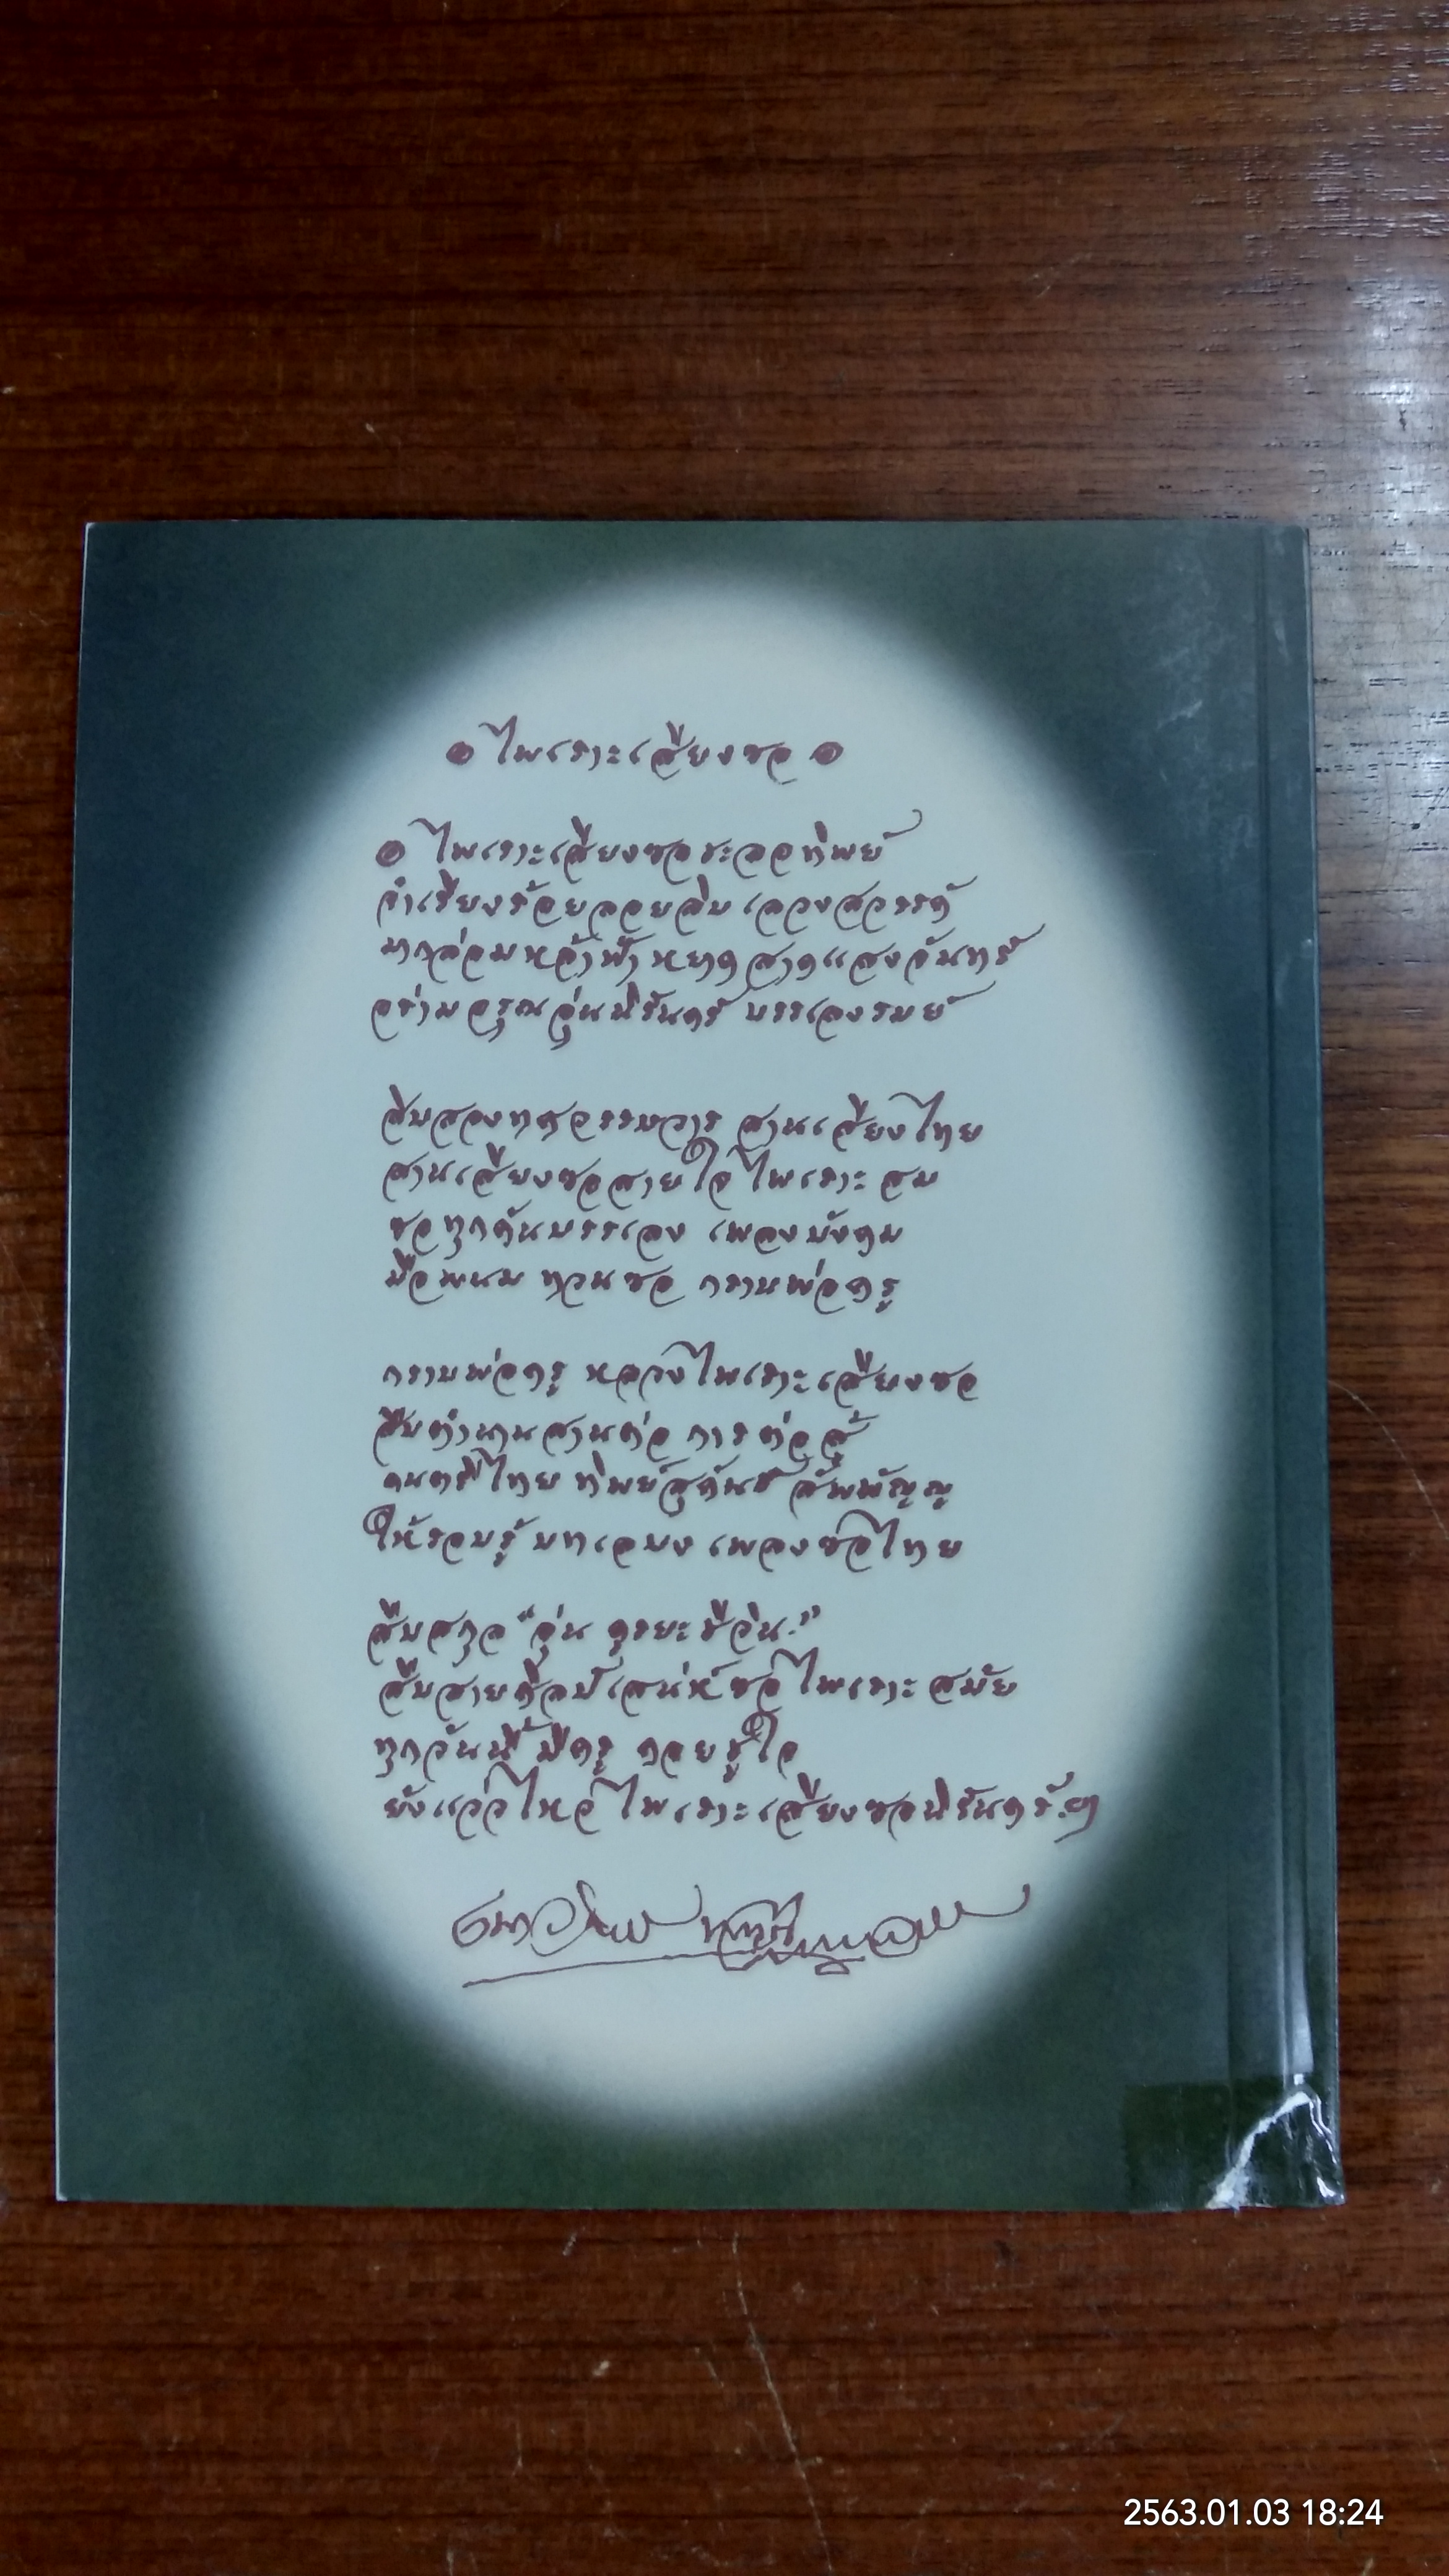 ๏ ไพเราะเสียงซอ ๏
๏ ไพเราะเสียงซอชะลอทิพย์
จำเรียงร้อยลอยลิบ เลววงสวรรค์
มากล่อมหล้าฟ้า หยาดสาดแสงจันทร์
อร่ามอรุณอุ่นนิรันดร์ บรรเลงรมย์
สิบสองทศวรรษวาร สานเสียงไทย
สานเสียงซอสายใจ ไพเราะ สม
ซอทุกคันบรรเลง เพลงบังคม
มือพนม ทวนซอ กราบพ่อครู
กราบพ่อครู หลวงไพเราะเสียงซอ
สืบตำนานสานต่อ การต่อสู้
ดนตรีไทย ทิพย์สุคันธ์ สัพพัญญู
ให้รอบรู้ บทเอบง เพลงซอไทย
สืบสกุล "อุ่น ดูรยะชีวิน."
สืบสายศิลป์เสน่ห์ซอ ไพเราะ สมัย
ทุกวันนี้ มีครู คอยรู้ใจ
ยังแว่วไหว ไพเราะเสียงซอนิรันดร์.ฯ
เนาวรัตน์ พงษ์ไพบูลย์
2563.01.03 18:24